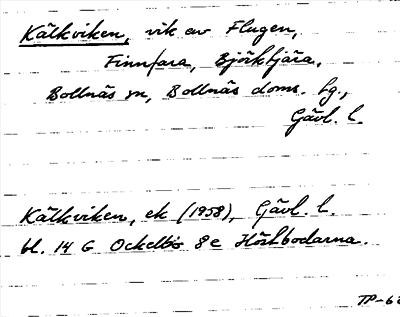 Kälkviken, vik av Flugen,
Finnfara, Björktjära,
Bollnäs sn, Bollnäs doms. hg.,
Gävl. l.
Kälkviken, ek (1958), Gävl. l.
bl. 14 G Ockelbo 8e Höstbodarna.
TP-6